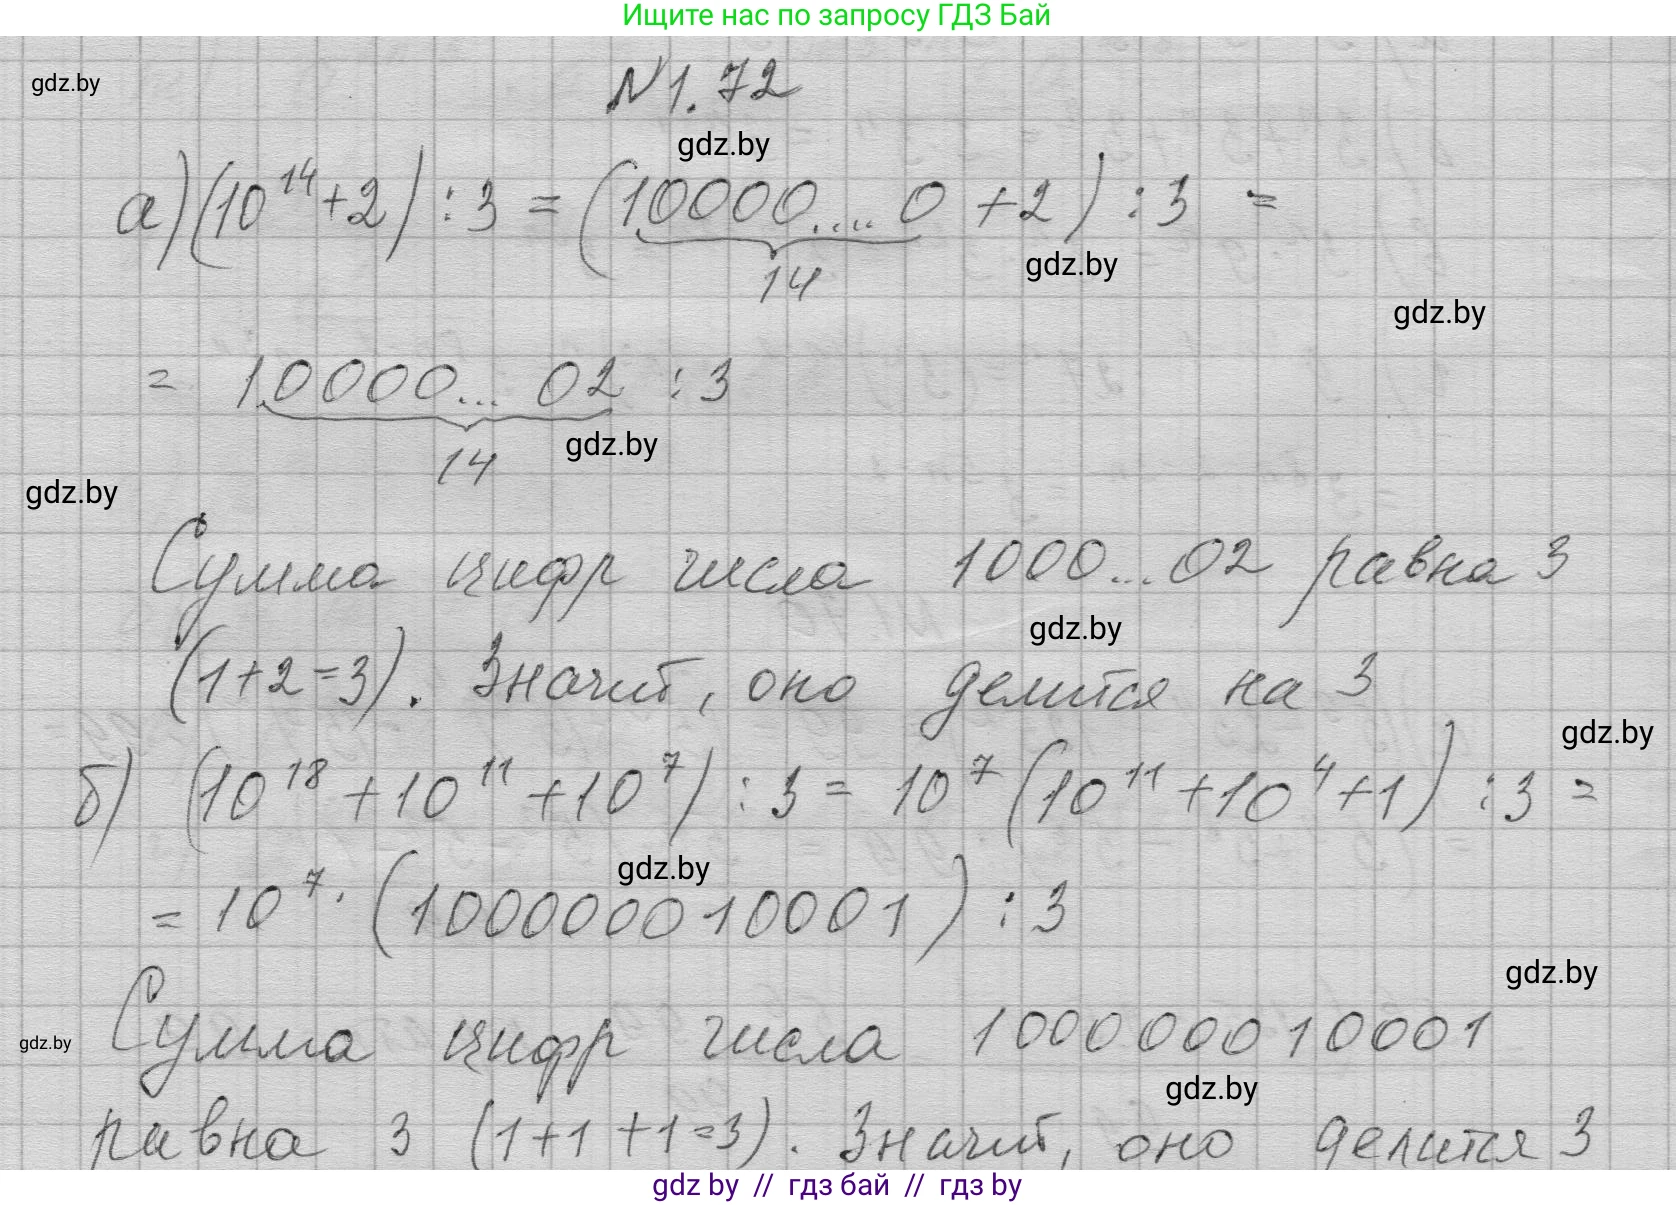 Ищите нас по запросу ГДЗ Бай
gdz.by
N 1.72
gdz.by
а) (10^14 + 2) : 3 = (10000....0 + 2) : 3 =
14
gdz.by
gdz.by
= 10000... 02 : 3
14
gdz.by
gdz.by
Сумма цифр числа 1000...02 равна 3
gdz.by
(1+2=3). Значит, оно делится на 3
gdz.by
б) (10^18 + 10^11 + 10^7) : 3 = 10^7 (10^11 + 10^4 + 1) : 3 =
gdz.by
= 10^7 · (100000010001) : 3
gdz.by
Сумма цифр числа 100000010001
gdz.by
gdz.by
равна 3 (1+1+1=3). Значит, оно делится 3
gdz by // гдз бай // гдз by